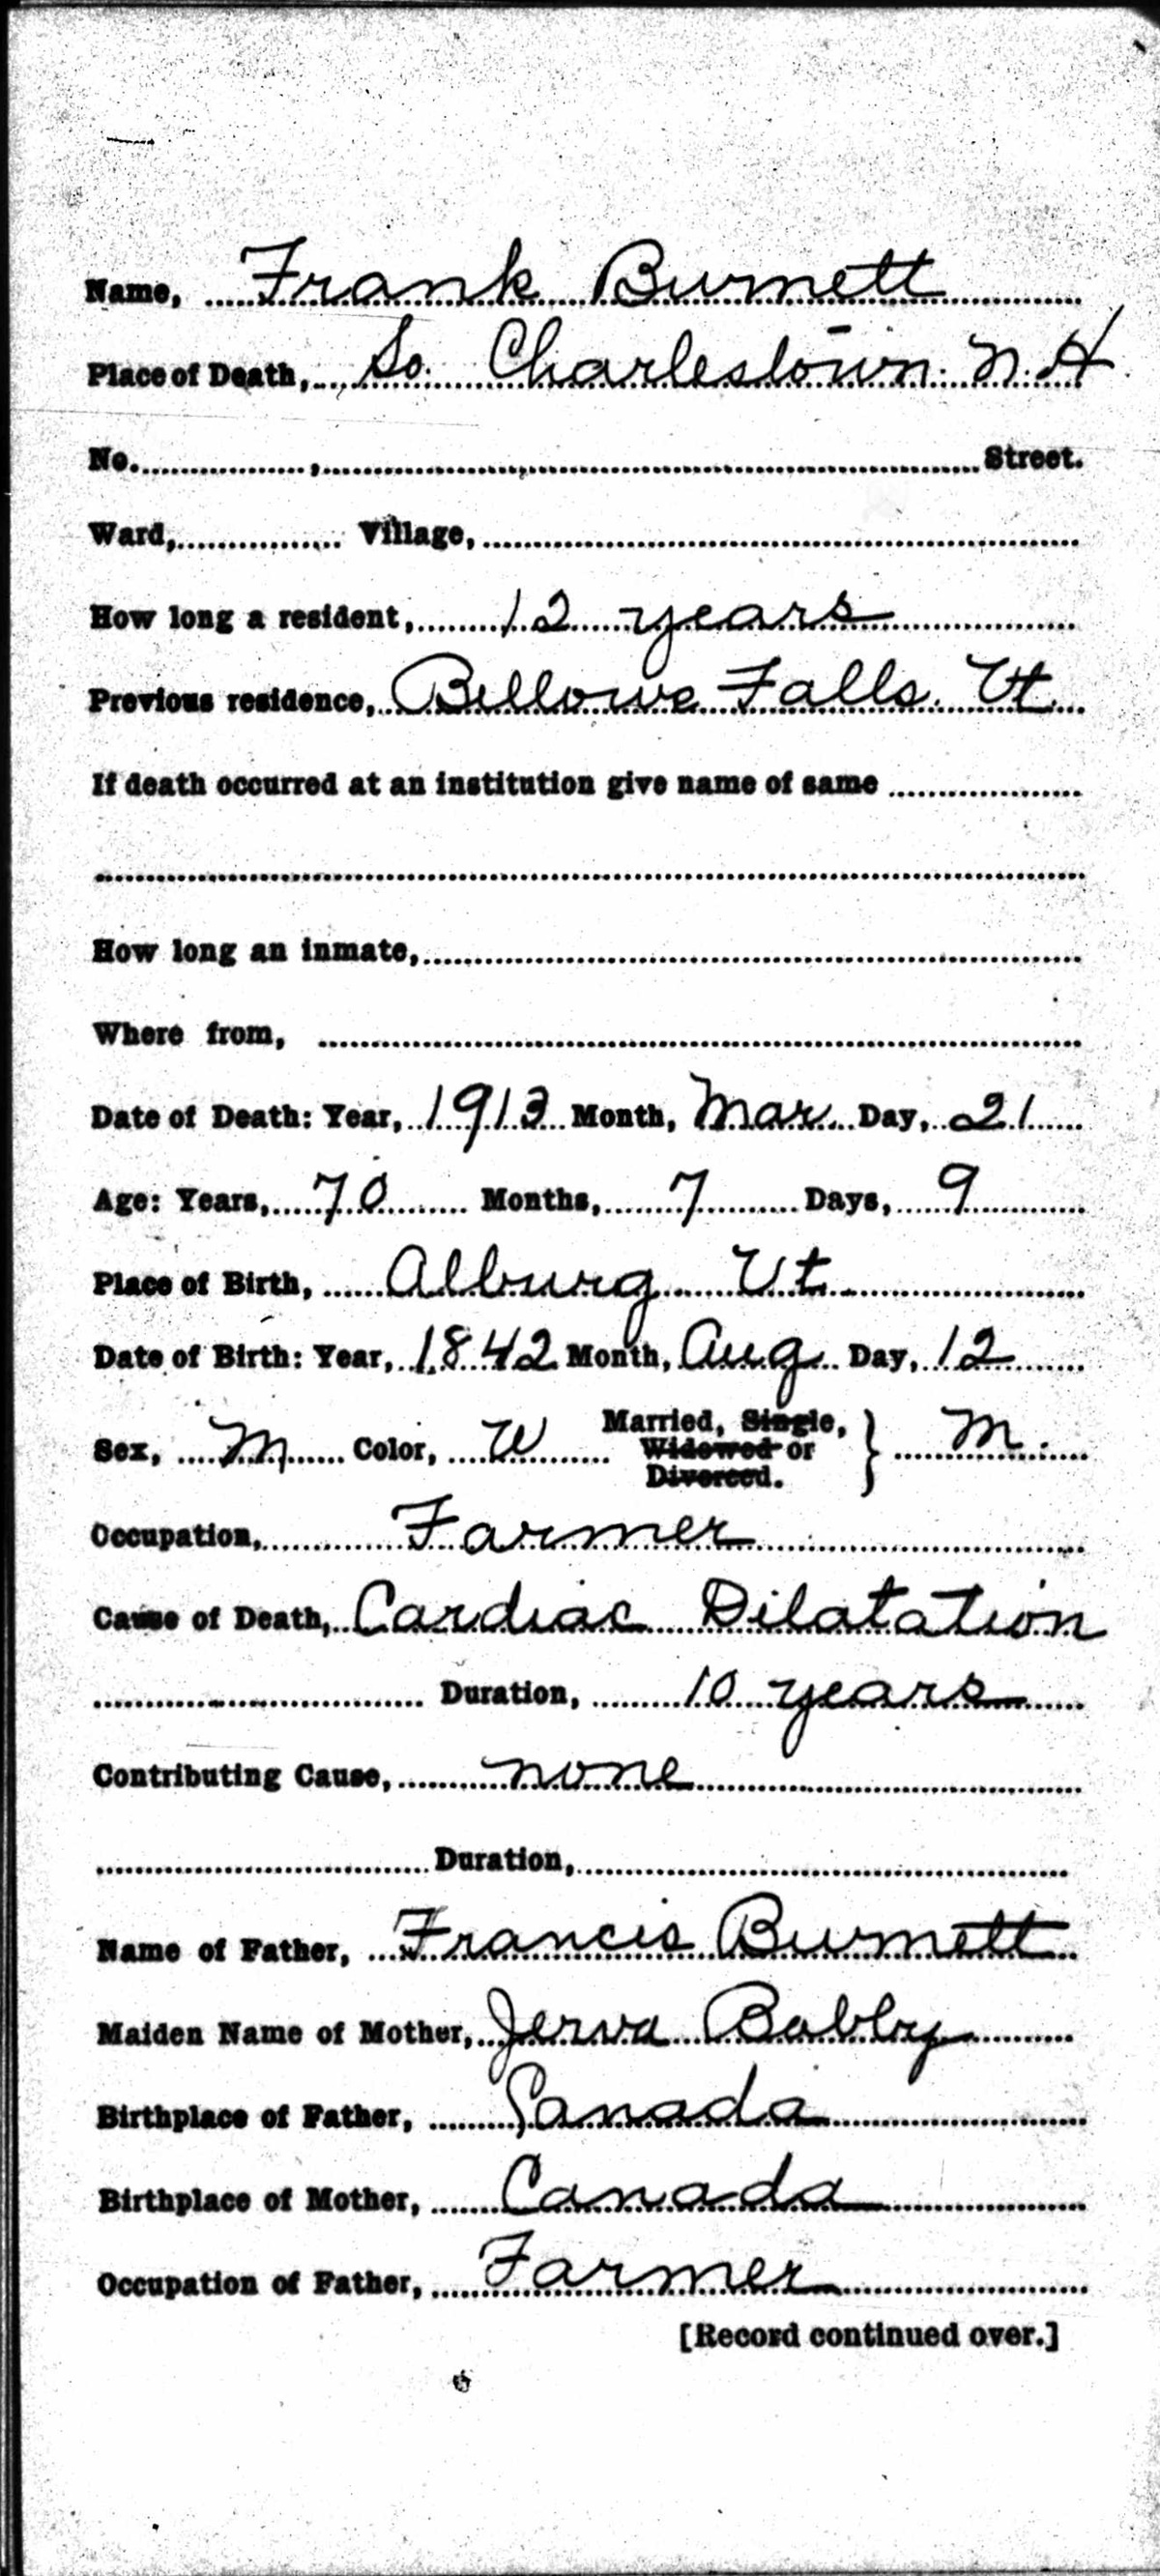 Name, Frank Burnett
Place of Death, So. Charlestown N.H.
No. , Street.
Ward, Village,
How long a resident, 12 years
Previous residence, Bellows Falls. Vt.
If death occurred at an institution give name of same
How long an inmate,
Where from,
Date of Death: Year, 1913 Month, Mar. Day, 21
Age: Years, 70 Months, 7 Days, 9
Place of Birth, Alburg Vt.
Date of Birth: Year, 1842 Month, Aug. Day, 12
Sex, M Color, W Married, Single, Widowed or Divorced. } M.
Occupation, Farmer
Cause of Death, Cardiac Dilatation
Duration, 10 years
Contributing Cause, none
Duration,
Name of Father, Francis Burnett
Maiden Name of Mother, Jerva
Birthplace of Father, Canada
Birthplace of Mother, Canada
Occupation of Father, Farmer
[Record continued over.]